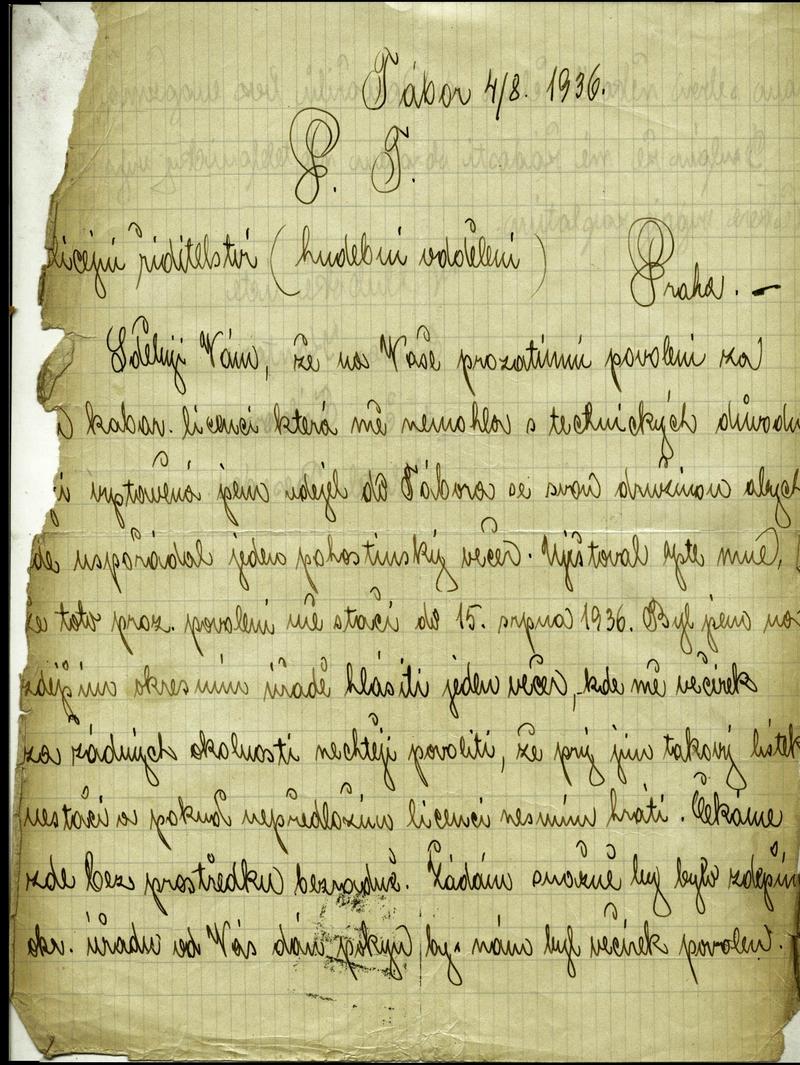 Tábor 4/8. 1936.
P. T.
licejní řiditelství (hudební oddělení) Praha. —
Sděluji Vám, že na Vaše prozatimní povolení za
kabar. licenci která mě nemohla s technických důvodu
jsem odejel do Tábora se svou družinou abych
de uspořádal jeden pohostinský večer. Ujistoval jste mně,
že toto proz. povolení mě stačí do 15. srpna 1936. Byl jsem na
zdejším okresním úřadě hlásiti jeden večer, kde mě večírek
za žádných okolností nechtějí povoliti, že prý jim takový lístek
nestačí a pokud nepředložím licenci nesmím hráti. Čekáme
zde bez prostředku bezradně. Žádám snažně by bylo zdejším
okr. úřadu od Vás dán pokyn by nám byl večírek povolen.